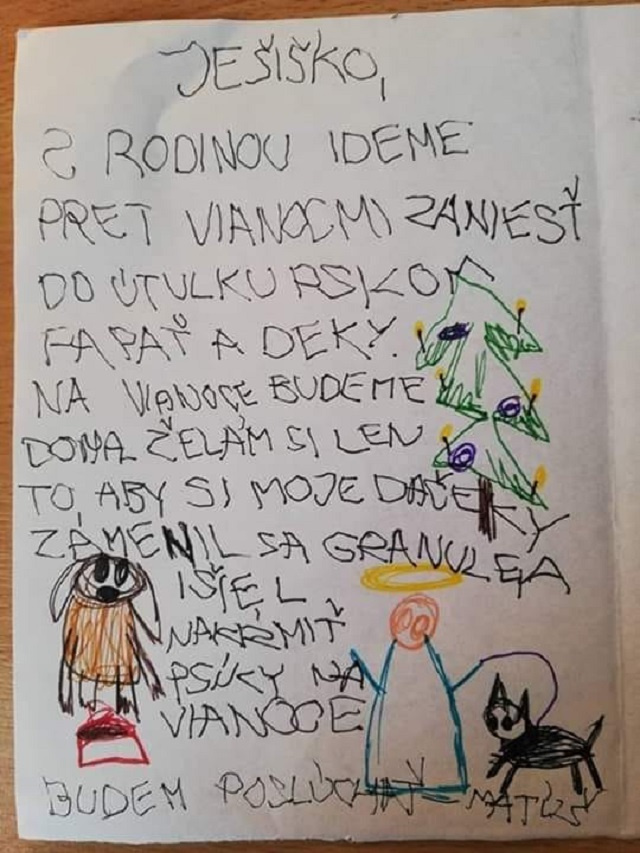 JEŠIŠKO,
S RODINOU IDEME
PRET VIANOCMI ZANIESŤ
DO ÚTULKU PSÍKOM
FAPAŤ A DEKY.
NA VIANOCE BUDEME
DOMA ŽELÁM SI LEN
TO, ABY SI MOJE DAČEKY
ZAMENIL SA GRANULE A
IŠIEL
NAKŔMIŤ
PSÍKY NA
VIANOCE
BUDEM POSLÚCHAŤ - MATÚŠ